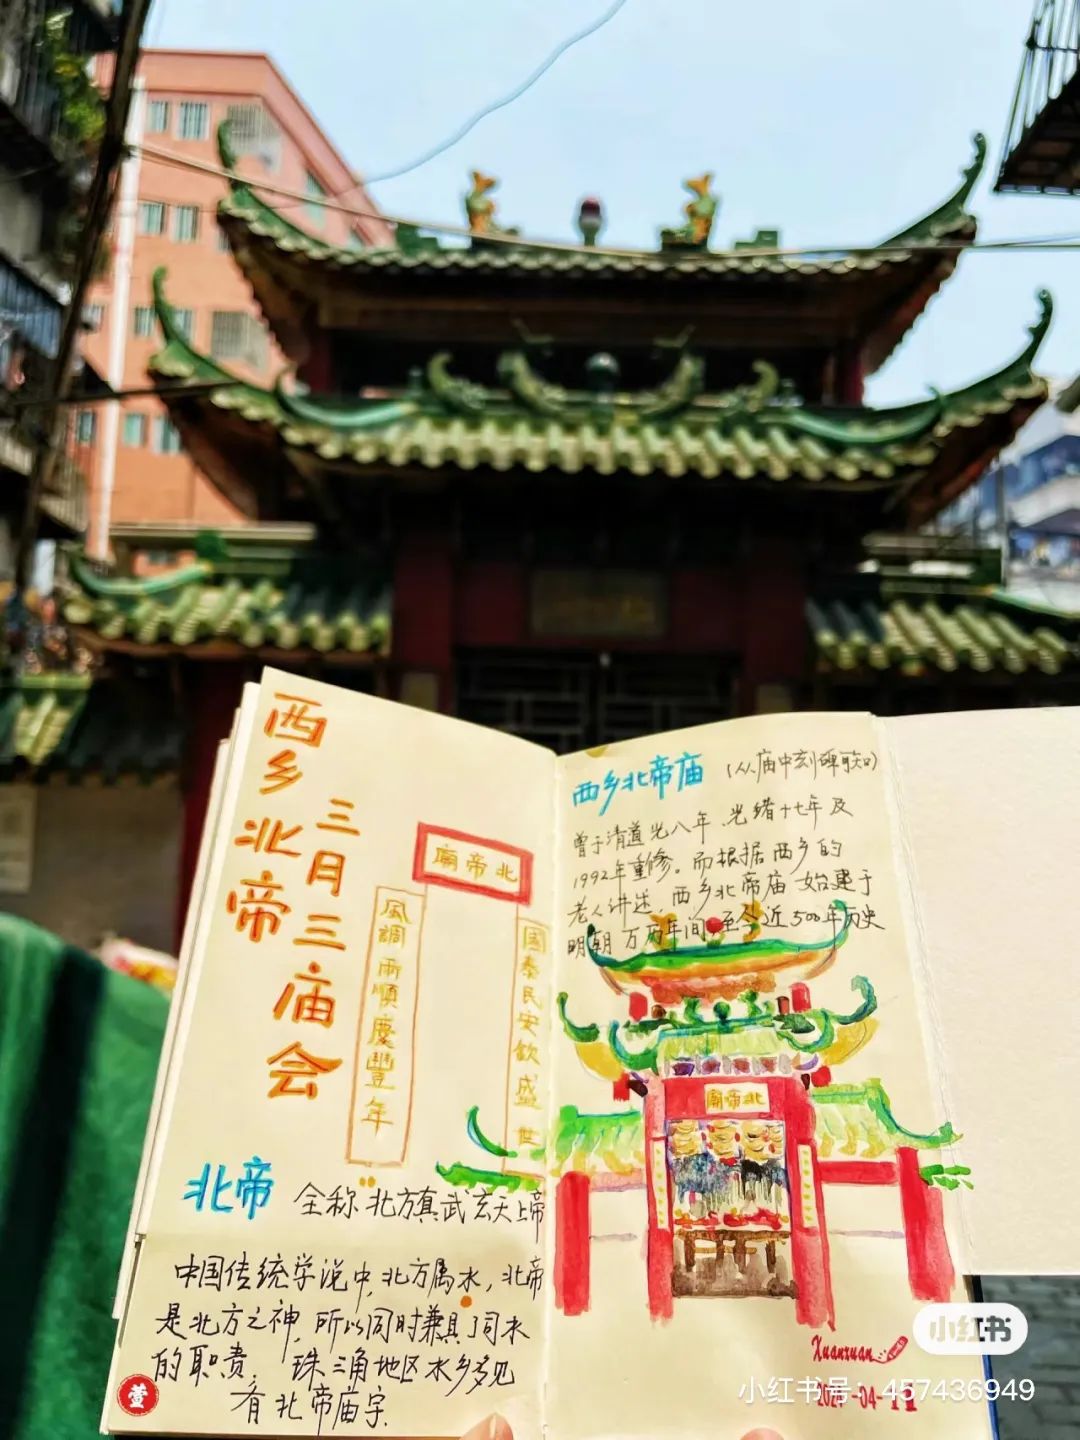 西乡北帝
三月三庙会
北帝廟
風調雨順慶豐年
国泰民安飲盛世
北帝 全称北方真武玄天上帝
中国传统学说中,北方属水,北帝
是北方之神,所以同时兼具了司水
的职责,珠三角地区水乡多见
有北帝庙宇.
萱
西乡北帝庙 (从庙中刻碑可知)
曾于清道光八年、光绪十七年及
1992年重修。而根据西乡的
老人讲述,西乡北帝庙始建于
明朝万历年间,至今近500年历史
北帝廟
Xuanxuan
小红书
小红书号:457436949